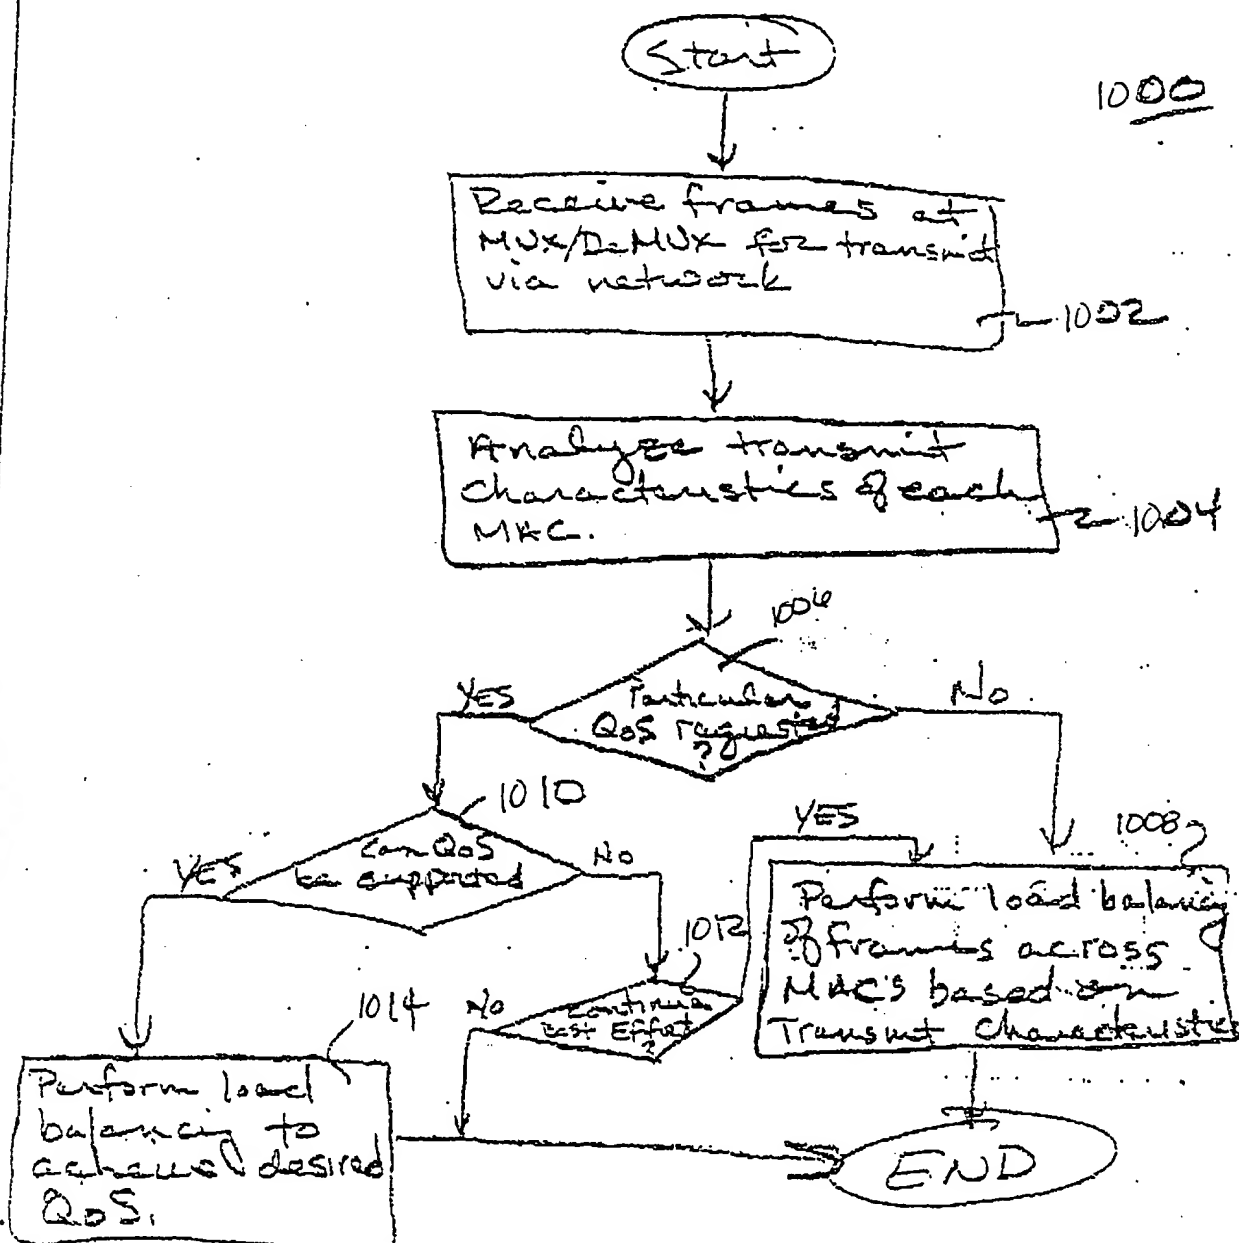 Start
1000
Receive frames at
MUX/DeMUX for transmit
via network
1002
Analyze transmit
characteristics of each
MAC.
1004
1006
Particular
QoS requested
?
YES
No
1010
Can QoS
be supported
YES
No
YES
1008
Perform load balancing
of frames across
MAC's based on
Transmit Characteristics
1012
Continue
Best Effort
?
No
1014
Perform load
balancing to
acheive desired
QoS.
END